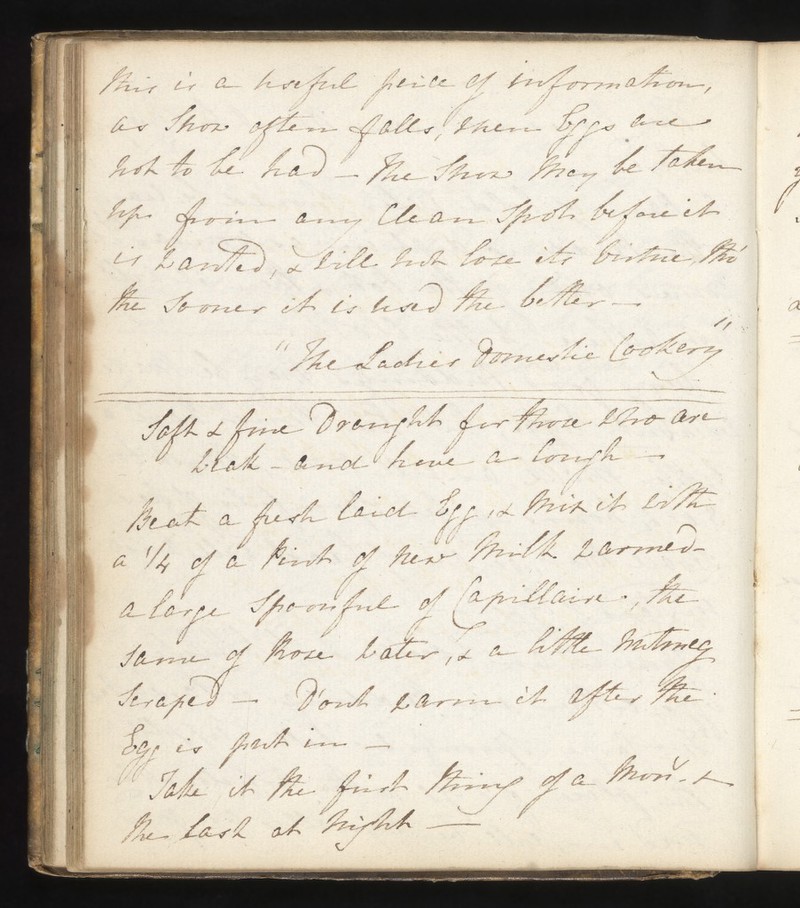 this is a useful peice of information,
as Snow often falls, when Eggs are
not to be had – The Snow may be taken
up from any Clean Spot before it
is wanted, & will not lose its Virtue, tho'
the sooner it is used the better –
"The Ladies Domestic Cookery"
Soft & fine Draught for those who are
weak – and have a Cough –
Beat a fresh laid Egg, & Mix it with
a 1/4 of a Pint of New Milk warmed –
a large Spoonful of Capillaire, the
same of Rose Water, & a little Nutmeg
Scraped – Don't warm it after the
Egg is put in –
Take it the first thing of a Morn̄. &
the last at Night –